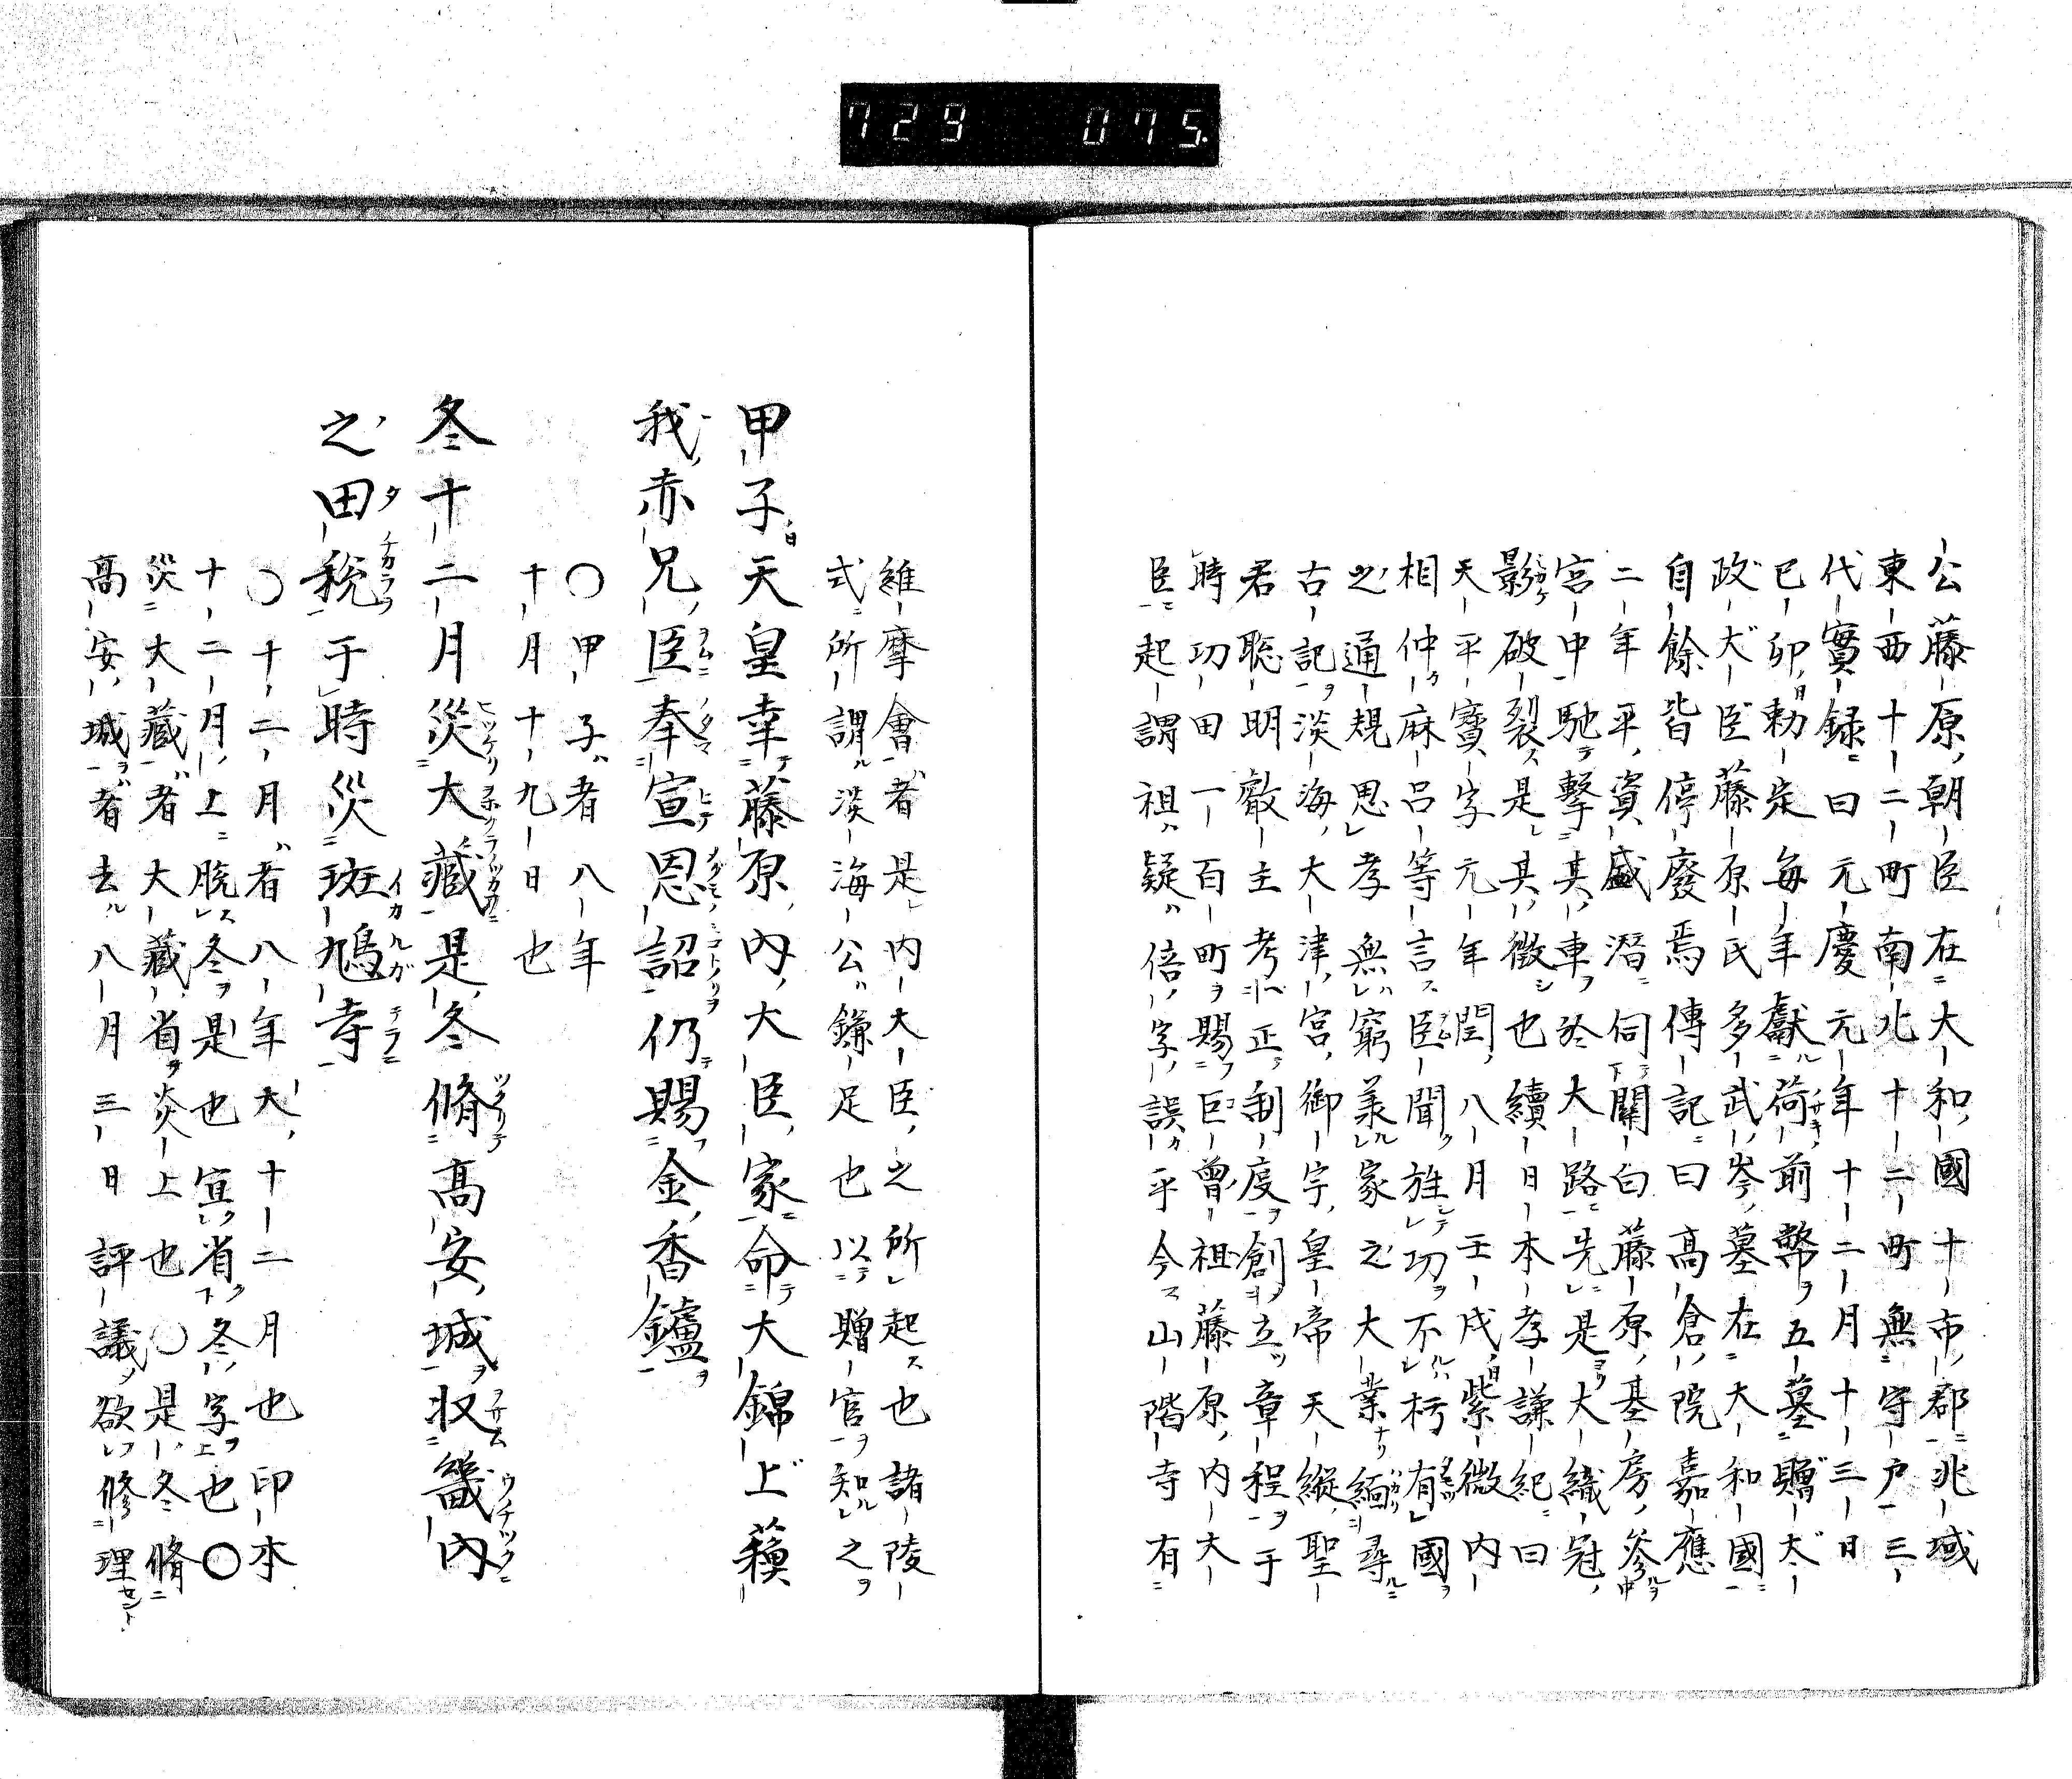 729 075.
公藤原朝臣在大和國十市郡兆域
東西十二町南北十二町無守戸三
代實録曰元慶元年十二月十三日
已卯勅定毎年獻荷前幣五墓贈太
政大臣藤原氏多武岑墓在大和國
自餘皆停廢焉傳記曰高倉院嘉應
二年平資盛潛伺關白藤原基房參
宮中馳撃其車於大路先是大織冠
影破裂是其徴也續日本孝謙紀曰
天平寳字元年閏八月壬戌紫微内
相仲麻呂等言臣聞旌功不朽有國
之通規思孝無窮羕家之大業緬尋
古記淡海大津宮御宇皇帝天縦聖
君聡明叡主考正制度創立章程于
時功田一百町賜巨曽祖藤原内大
臣起謂祖疑倍字誤乎今山階寺有
維摩會者是内大臣之所起也諸陵
式所謂淡海公鎌足也以贈官知之
甲子天皇幸藤原内大臣家命大錦上蘓
我赤兄臣奉宣恩詔仍賜金香鑪
〇甲子者八年
十月十九日也
冬十二月災大藏是冬脩高安城収畿内
之田税于時災斑鳩寺
〇十二月者八年大十二月也印本
十二月上脱冬是也冝省冬字也〇
災大藏者大藏省炎上也〇是冬脩
高安城者去八月三日評議欲修理